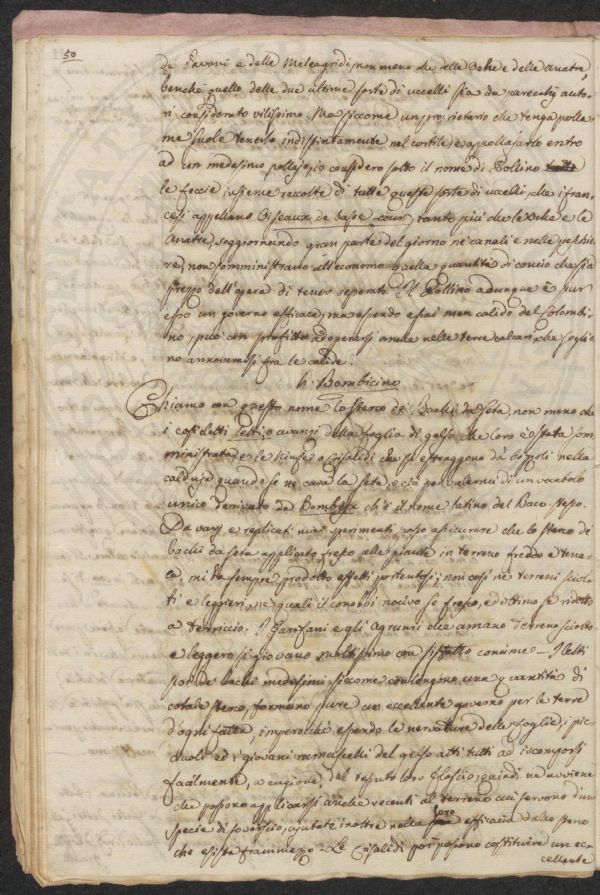 50
de Pavoni e delle Meleagridi, non meno che delle Oche e delle Anatre,
benchè quello delle due ultime sorte di uccelli sia da parecchj auto-
ri considerato vilissimo. Ma siccome un proprietario che tenga polla-
me suole tenerlo indistintamente nel cortile, e appollajarlo entro
ad un medesimo pollajo, io considero sotto il nome di Pollino
le feccie insieme raccolte di tutte queste sorte di uccelli, che i fran-
cesi appellano Oiseaux de basse cour, tanto più che le Oche e le
Anatre, soggiornando gran parte del giorno ne' canali e nelle peschie-
re, non somministrano all'economo quella quantità di concio che sia
prezzo dell'opera di tener separato. Il Pollino adunque è pur
esso un governo efficace, ma essendo assai men calido del Colombi-
no, può con profitto adoperarsi anche nelle terre calcari, che soglio-
no annoverarsi fra le calide.
h. Bombicino
Chiamo con questo nome lo sterco de' Bachi da Seta, non meno che
i così detti letti, o avanzi della foglia di gelso che loro è stata som-
ministrata, e le Ninfe o Crisalidi che si estraggono da' bozzoli nella
caldaja quando se ne cava la seta, e ciò per valermi di un vocabolo
unico derivato da Bombyx ch'è il nome latino del Baco stesso.
Da varj e replicati miei sperimenti posso assicurare che lo sterco di
bachi da seta applicato fresco alle piante in terreno freddo e tena-
ce, mi ha sempre prodotto effetti portentosi; non così ne' terreni sciol-
ti e leggeri, ne' quali il conobbi nocivo se fresco, ed ottimo se ridotto
a terriccio. I Garofani e gli Agrumi che amano terreno sciolto
e leggero si giovano moltissimo con siffatto concime. I letti
poi de' bachi medesimi, siccome contengono una quantità di
cotale sterco, formano pure un eccellente governo per le terre
d'ogni fatta, imperciocchè essendo le nervature delle foglie, i pic-
ciuoli ed i giovani ramuscelli del gelso atti tutti ad iscomporsi
facilmente, a cagione del tessuto loro floscio, quindi ne avviene
che possono applicarsi anche recenti al terreno cui servono d'una
specie di soverscio, ajutato inoltre nella loro efficacia dallo sterco
che esiste frammezzo. Le Crisalidi poi possono costituire un ec-
cellente